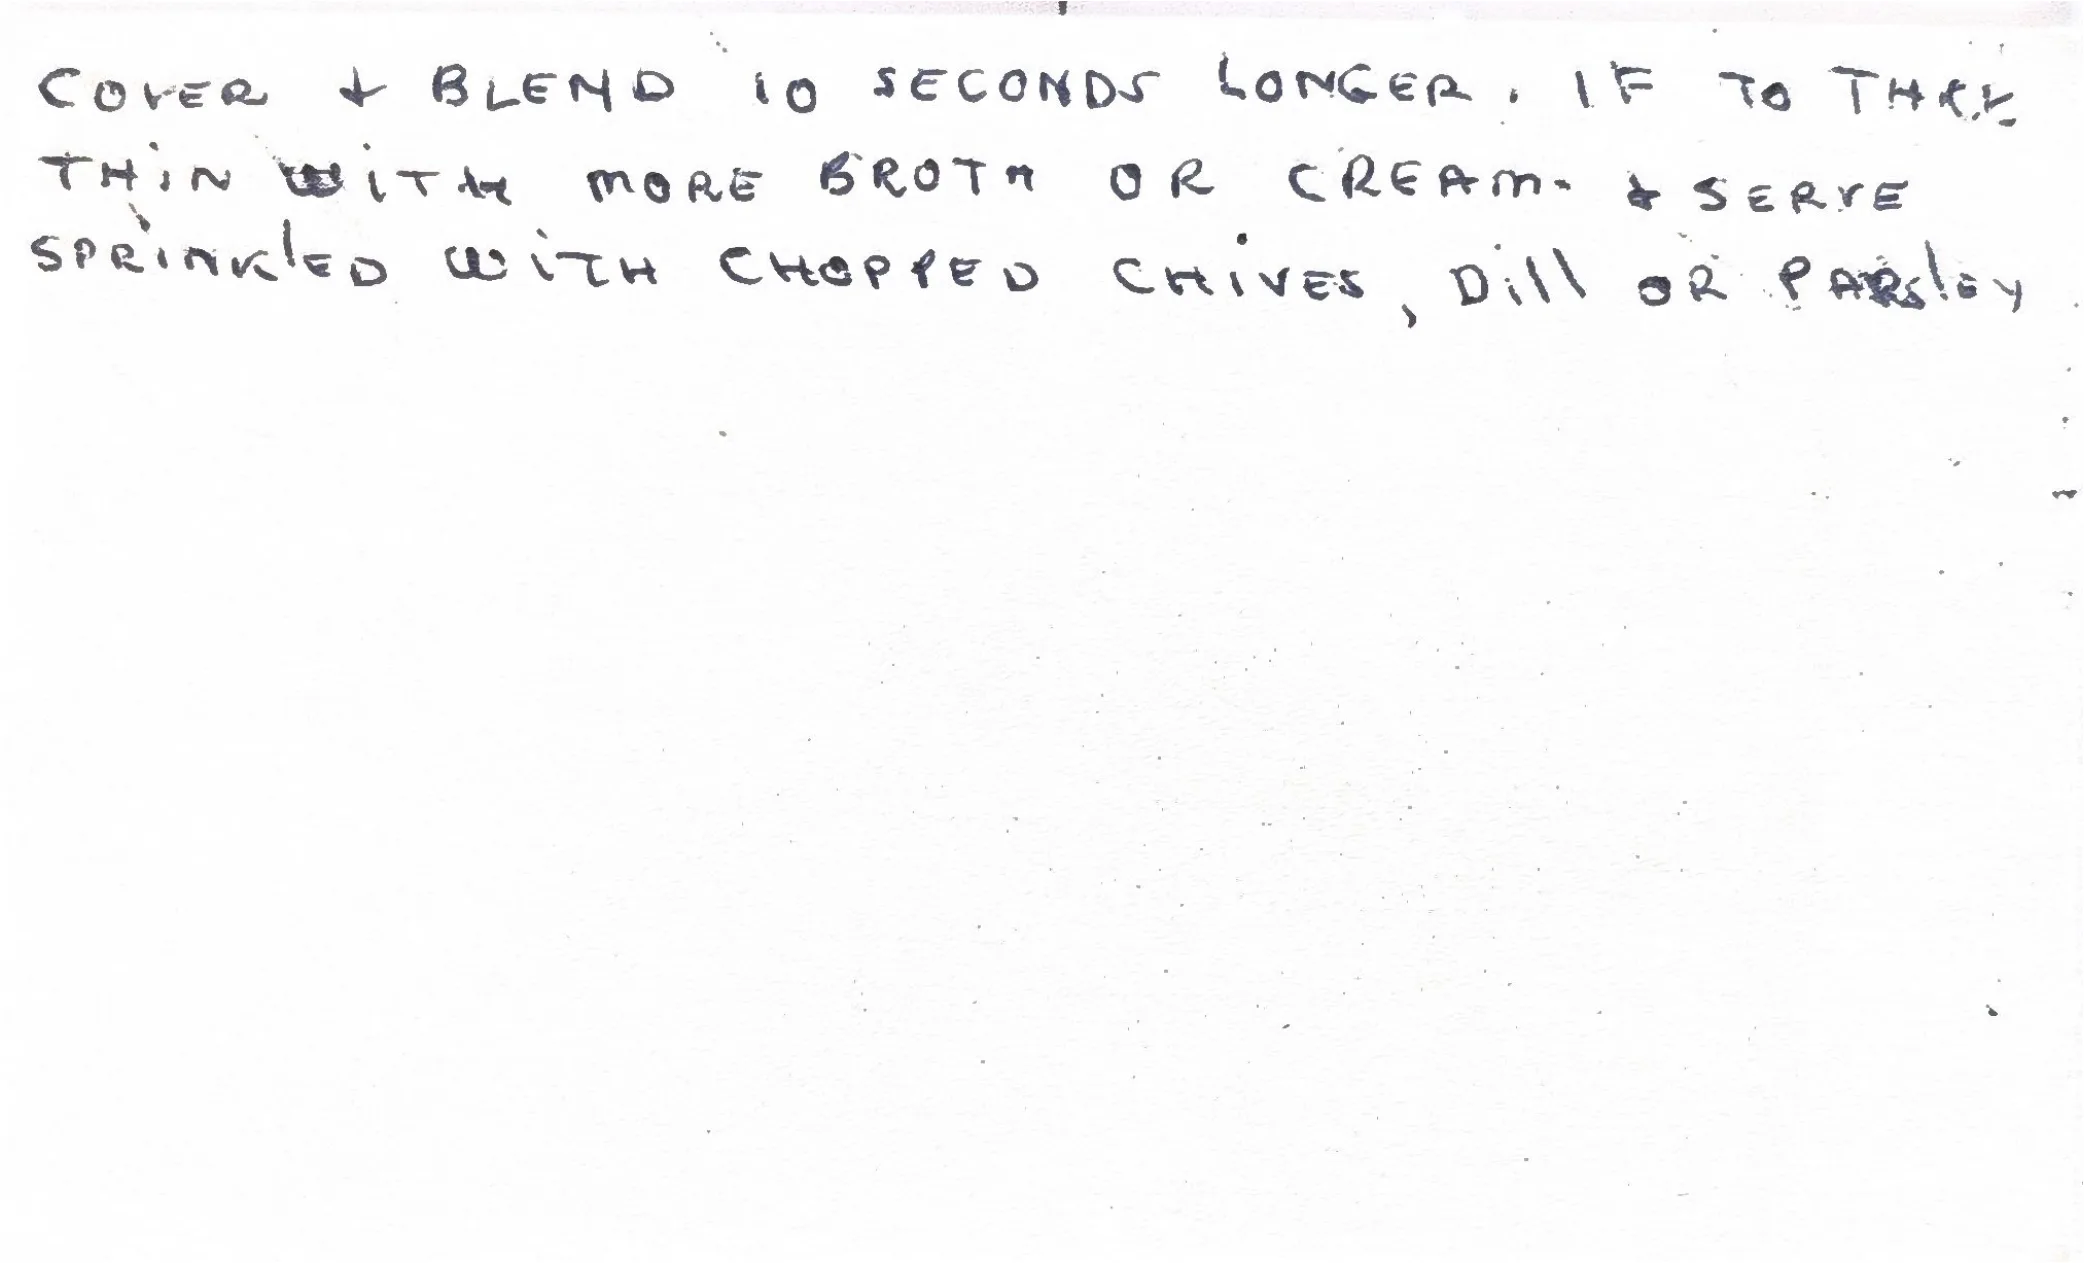 COVER & BLEND 10 SECONDS LONGER. IF TO
THIN WITH MORE BROTH OR CREAM. & SERVE
SPRINKLED WITH CHOPPED CHIVES, Dill OR PARSley